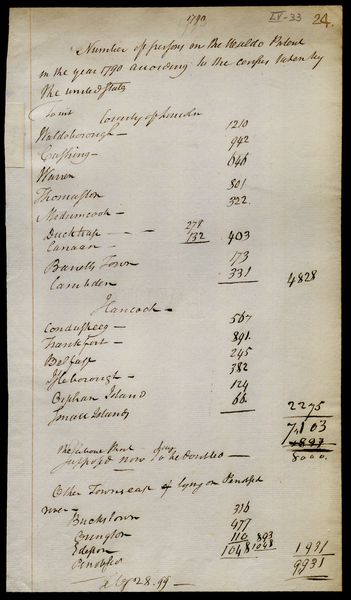 1790
LV-33 24.
Number of persons on the Waldo Patent
in the year 1790 according to the census taken by
the united States
To wit County of Lincoln
Waldoborough — 1210
Cushing — 942
Warren 646
Thomaston 801
Medumcook — 322
Ducktrap — — 278
Canaan — 132 403
Barretts Town 173
Cambden 331 4828
Hancock —
Conduskeeg — 567
Frankfort — 891
Belfast 245
Isleborough — 382
Orphan Island 124
Small Islands 66 2275
7,103
supposed now to be double — 8000.
Other Towns east of lying on Penobscot
river —
Buckstown 316
Orrington 477
Edeston 110 893
Penobscot 1048 1048 1931
9931